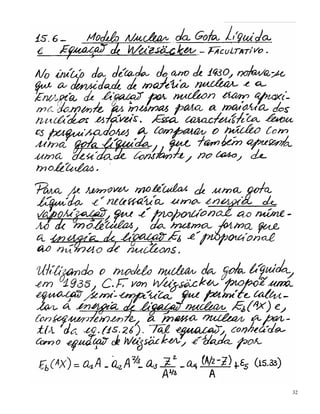 15.6 - Modelo Nuclear da Gota Líquida
e Equação de Weizsäcker - FACULTATIVO.
No início da década do ano de 1930, notava-se
que a densidade de matéria nuclear e a
Energia de Ligação por nucleon eram aproxi-
madamente as mesmas para a maioria dos
nuclídeos estáveis. Essa característica levou
os pesquisadores a comparar o núcleo com
uma gota líquida, que também apresenta
uma desidade constante, no caso, de
moléculas.
Para se remover moléculas de uma gota
líquida é necessária uma energia de
vaporização, que é proporcional ao núme-
ro de moléculas, da mesma forma que
a energia de ligação Eb é proporcional
ao número de nucleons.
Utilizando o modelo nuclear da gota líquida,
em 1935, C.F. von Weizsäcker propôs uma
equação semi-empírica que permite calcu-
lar a energia de ligação nuclear Eb(ᴬX) e,
consequentemente, a massa nuclear a par-
tir da eq. (15.26). Tal equação, conhecida
como equação de Weizsäcker, é dada por
Eb(ᴬX) = a₁A - a₂A^2/3 - a₃ Z²/A^1/3 - a₄ (A/2-Z)²/A + ε₅ (15.33)
32